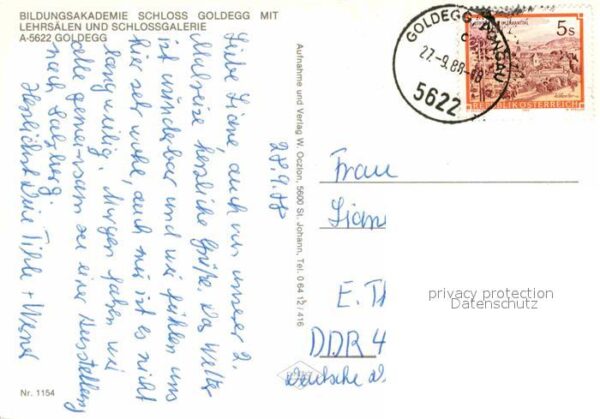 BILDUNGSAKADEMIE SCHLOSS GOLDEGG MIT
LEHRSÄLEN UND SCHLOSSGALERIE
A-5622 GOLDEGG
Liebe Liane, auch von unserer 2.
Malreise herzliche Grüße. Das Wetter
ist wunderbar und wir fühlen uns
hier sehr wohl, auch mir ist es nicht
langweilig. Morgen fahren wir
alle gemeinsam zu einer Ausstellung
nach Salzburg.
Herzlichst Deine + Werner
28.9.88
Aufnahme und Verlag W. Oczlon, 5600 St. Johann, Tel. 0 64 12 / 416
Nr. 1154
GOLDEGG PONGAU
27.-9.88-18
c
5622
5s
REPUBLIK ÖSTERREICH
Frau
Liane
E. Th
DDR 4
Deutsche
privacy protection
Datenschutz